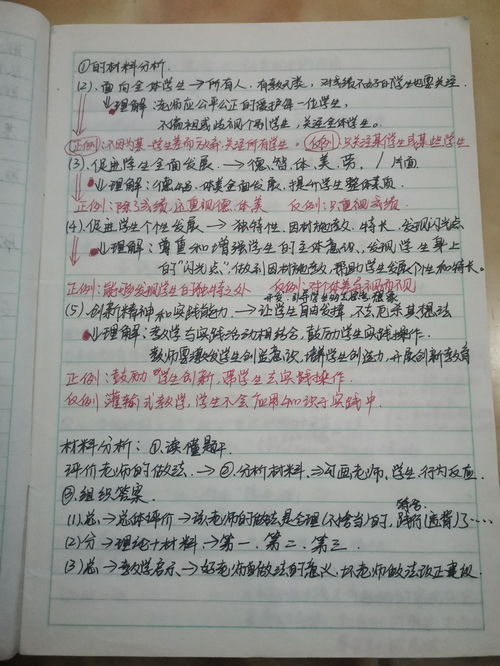 ①的材料分析.
(2).面向全体学生→所有人.有教无类,对成绩不好的学生也要关注.
↓理解:老师应公平公正的爱护每一位学生,
不偏袒或歧视个别学生,关注全体学生。
正例:不因为某一学生差而放弃,关注所有学生. 反例:只关注某学生或某些学生
(3).促进学生全面发展.→德、智、体、美、劳. / 片面
↓理解:德、智、体美全面发展,提升学生整体素质.
正例:除了成绩,还重视德、体、美 反例:只重视成绩.
(4).促进学生个性发展→独特性.因材施教.特长、发现闪光点
↓理解:尊重和增强学生的主体意识、发现学生身上
的"闪光点",做到因材施教,帮助学生发展个性和特长。
正例:能够发现学生的独特之处 反例:对个体差异视而不见
(5).创新精神和实践能力→让学生自由发挥,不去扼杀其想法
↓理解:教学与实践活动相结合,鼓励学生实践操作.
教师要激发学生创造意识,培养学生创造力,开展创新教育
正例:鼓励学生创新,带学生去实践操作.
反例 灌输式教学,学生不会应用知识于实践中.
材料分析:①.读懂题干.
评价老师的做法.→②.分析材料.→勾画老师、学生、行为反应.
③.组织答案.
符合.
(1)总→总体评价→该老师的做法是合理(不恰当)的,践行(违背)了……
(2)分→理论+材料→第一、第二、第三.
(3)总→教学启示→好老师的做法的意义,坏老师做法改正建议.